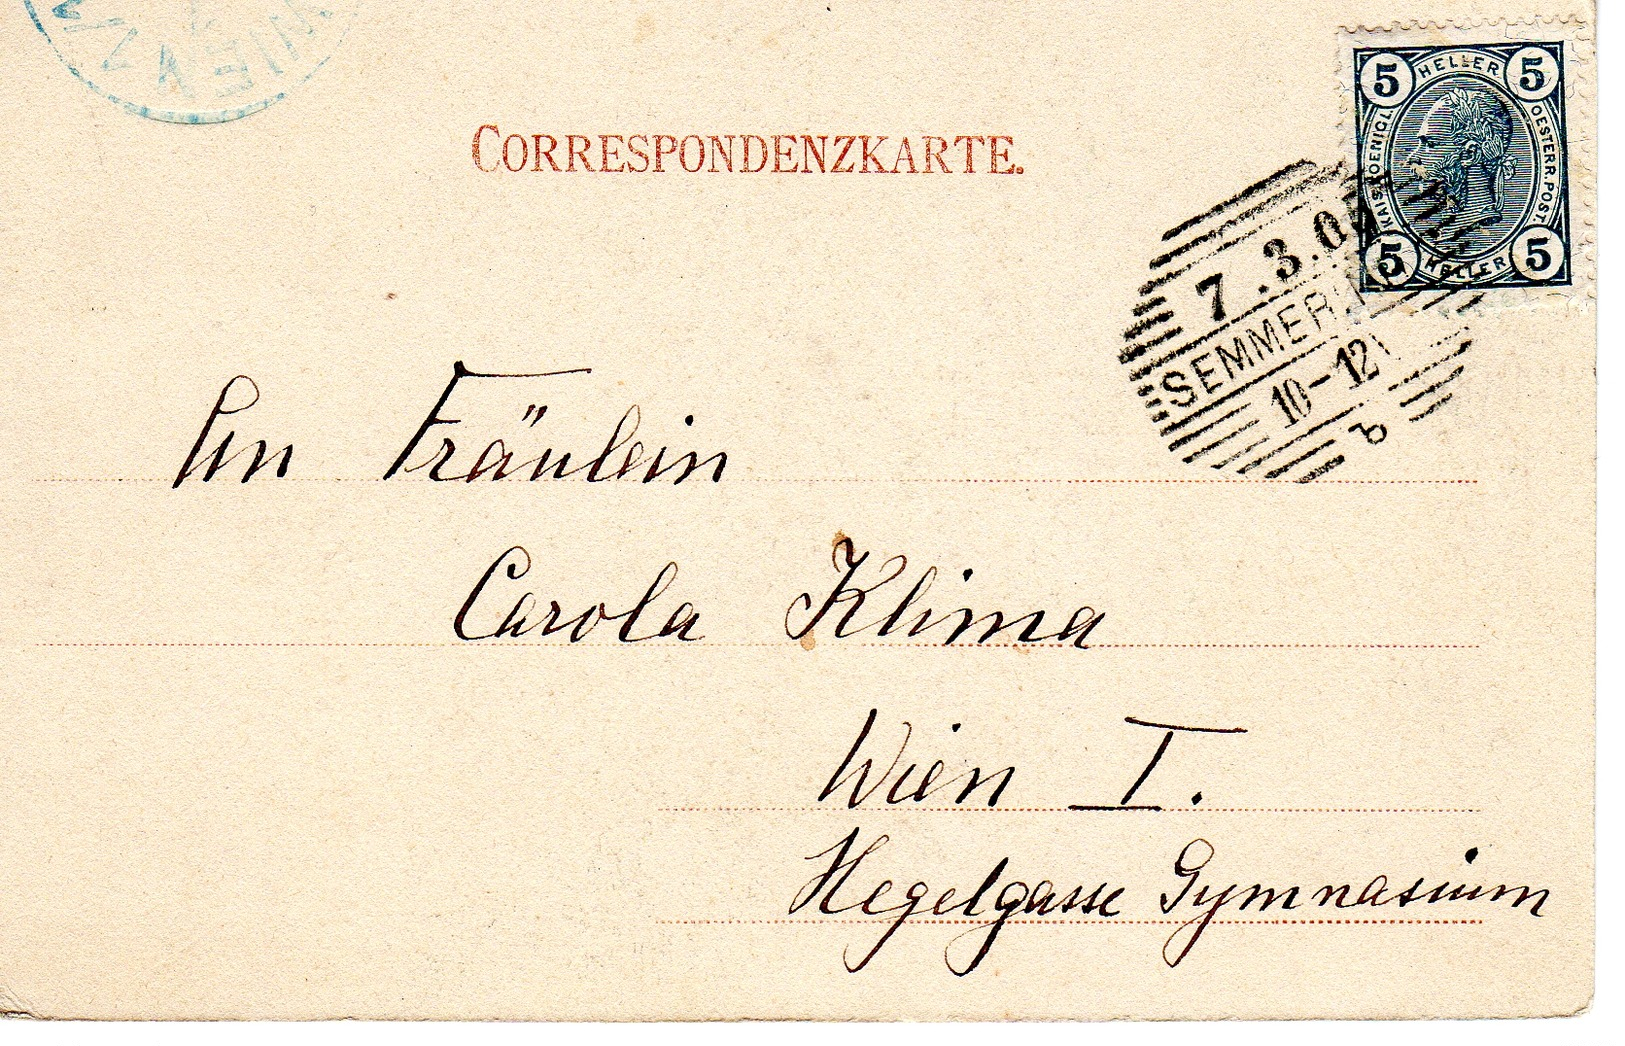 WIEN
CORRESPONDENZKARTE.
5 HELLER 5
KAIS. KOENIGL. OESTERR. POST.
5 HELLER 5
7.3.0
SEMMERI
10-12
b
An Fräulein
Carola Klima
Wien I.
Hegelgasse Gymnasium